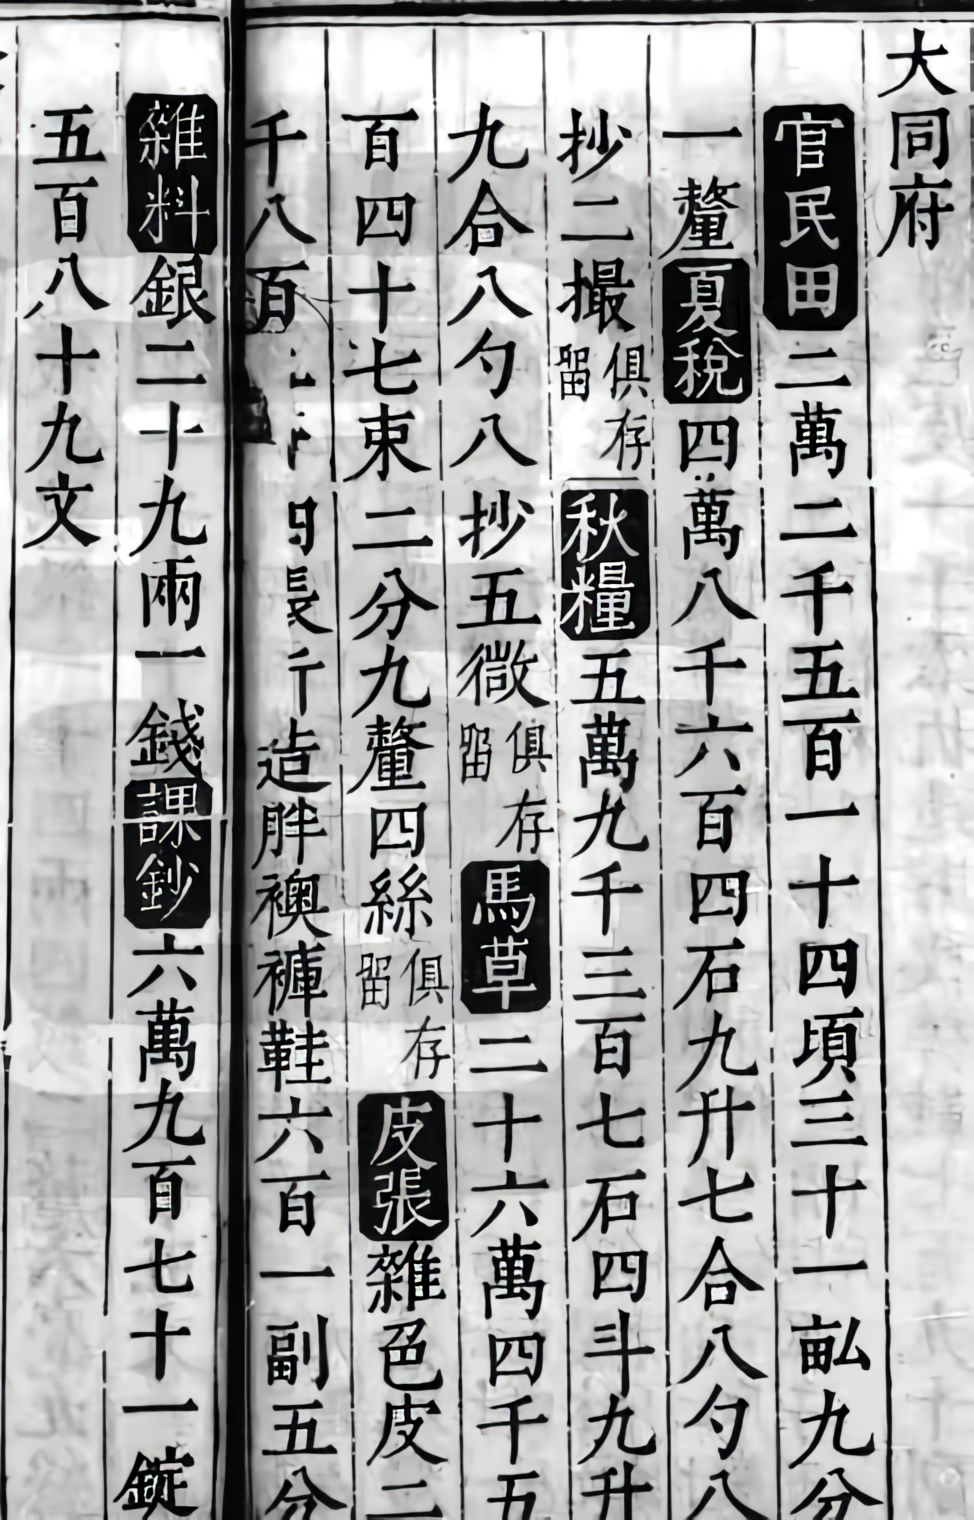 大同府
官民田二萬二千五百一十四頃三十一畝九分
一釐夏稅四萬八千六百四石九升七合八勺八
抄二撮俱存留秋糧五萬九千三百七石四斗九升
九合八勺八抄五微俱存留馬草二十六萬四千五
百四十七束二分九釐四絲俱存留皮張雜色皮二
千八百造胖襖褲鞋六百一副五分
雜料銀二十九兩一錢課鈔六萬九百七十一錠
五百八十九文